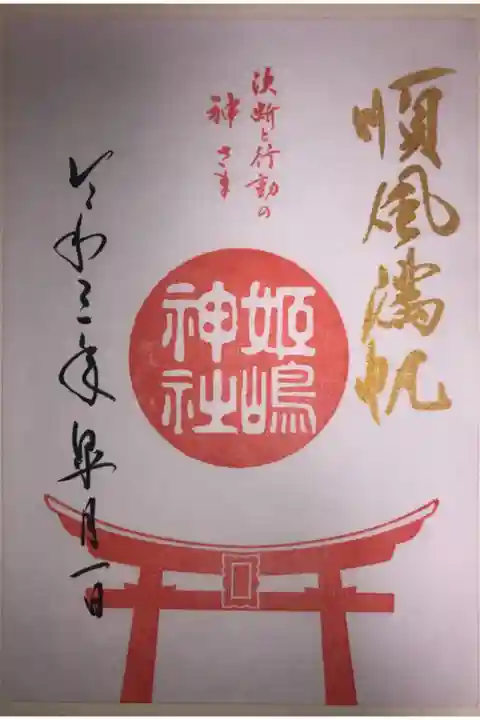 順風満帆
決断と行動の
神さま
姫嶋
神社
令和三年皐月一日